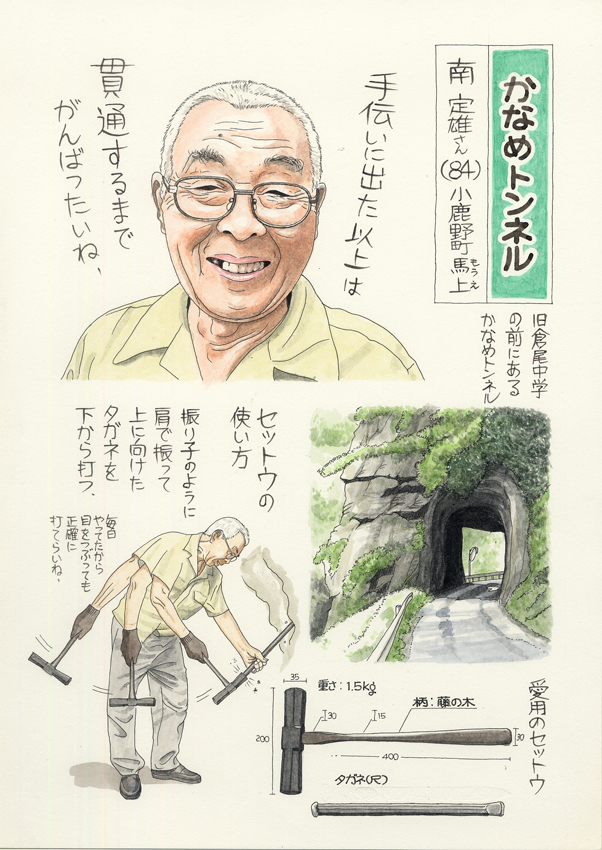 かなめトンネル
南 定雄さん(84)小鹿野町馬上
もうえ
手伝いに出た以上は
貫通するまで
がんばったいね、
旧倉尾中学
の前にある
かなめトンネル
セットウの
使い方
振り子のように
肩で振って
上に向けた
タガネを
下から打つ、
毎日
やってたから
目をつぶっても
正確に
打てらいね、
愛用のセットウ
35
重さ:1.5kg
30
15
柄:藤の木
200
400
30
タガネ(尺)